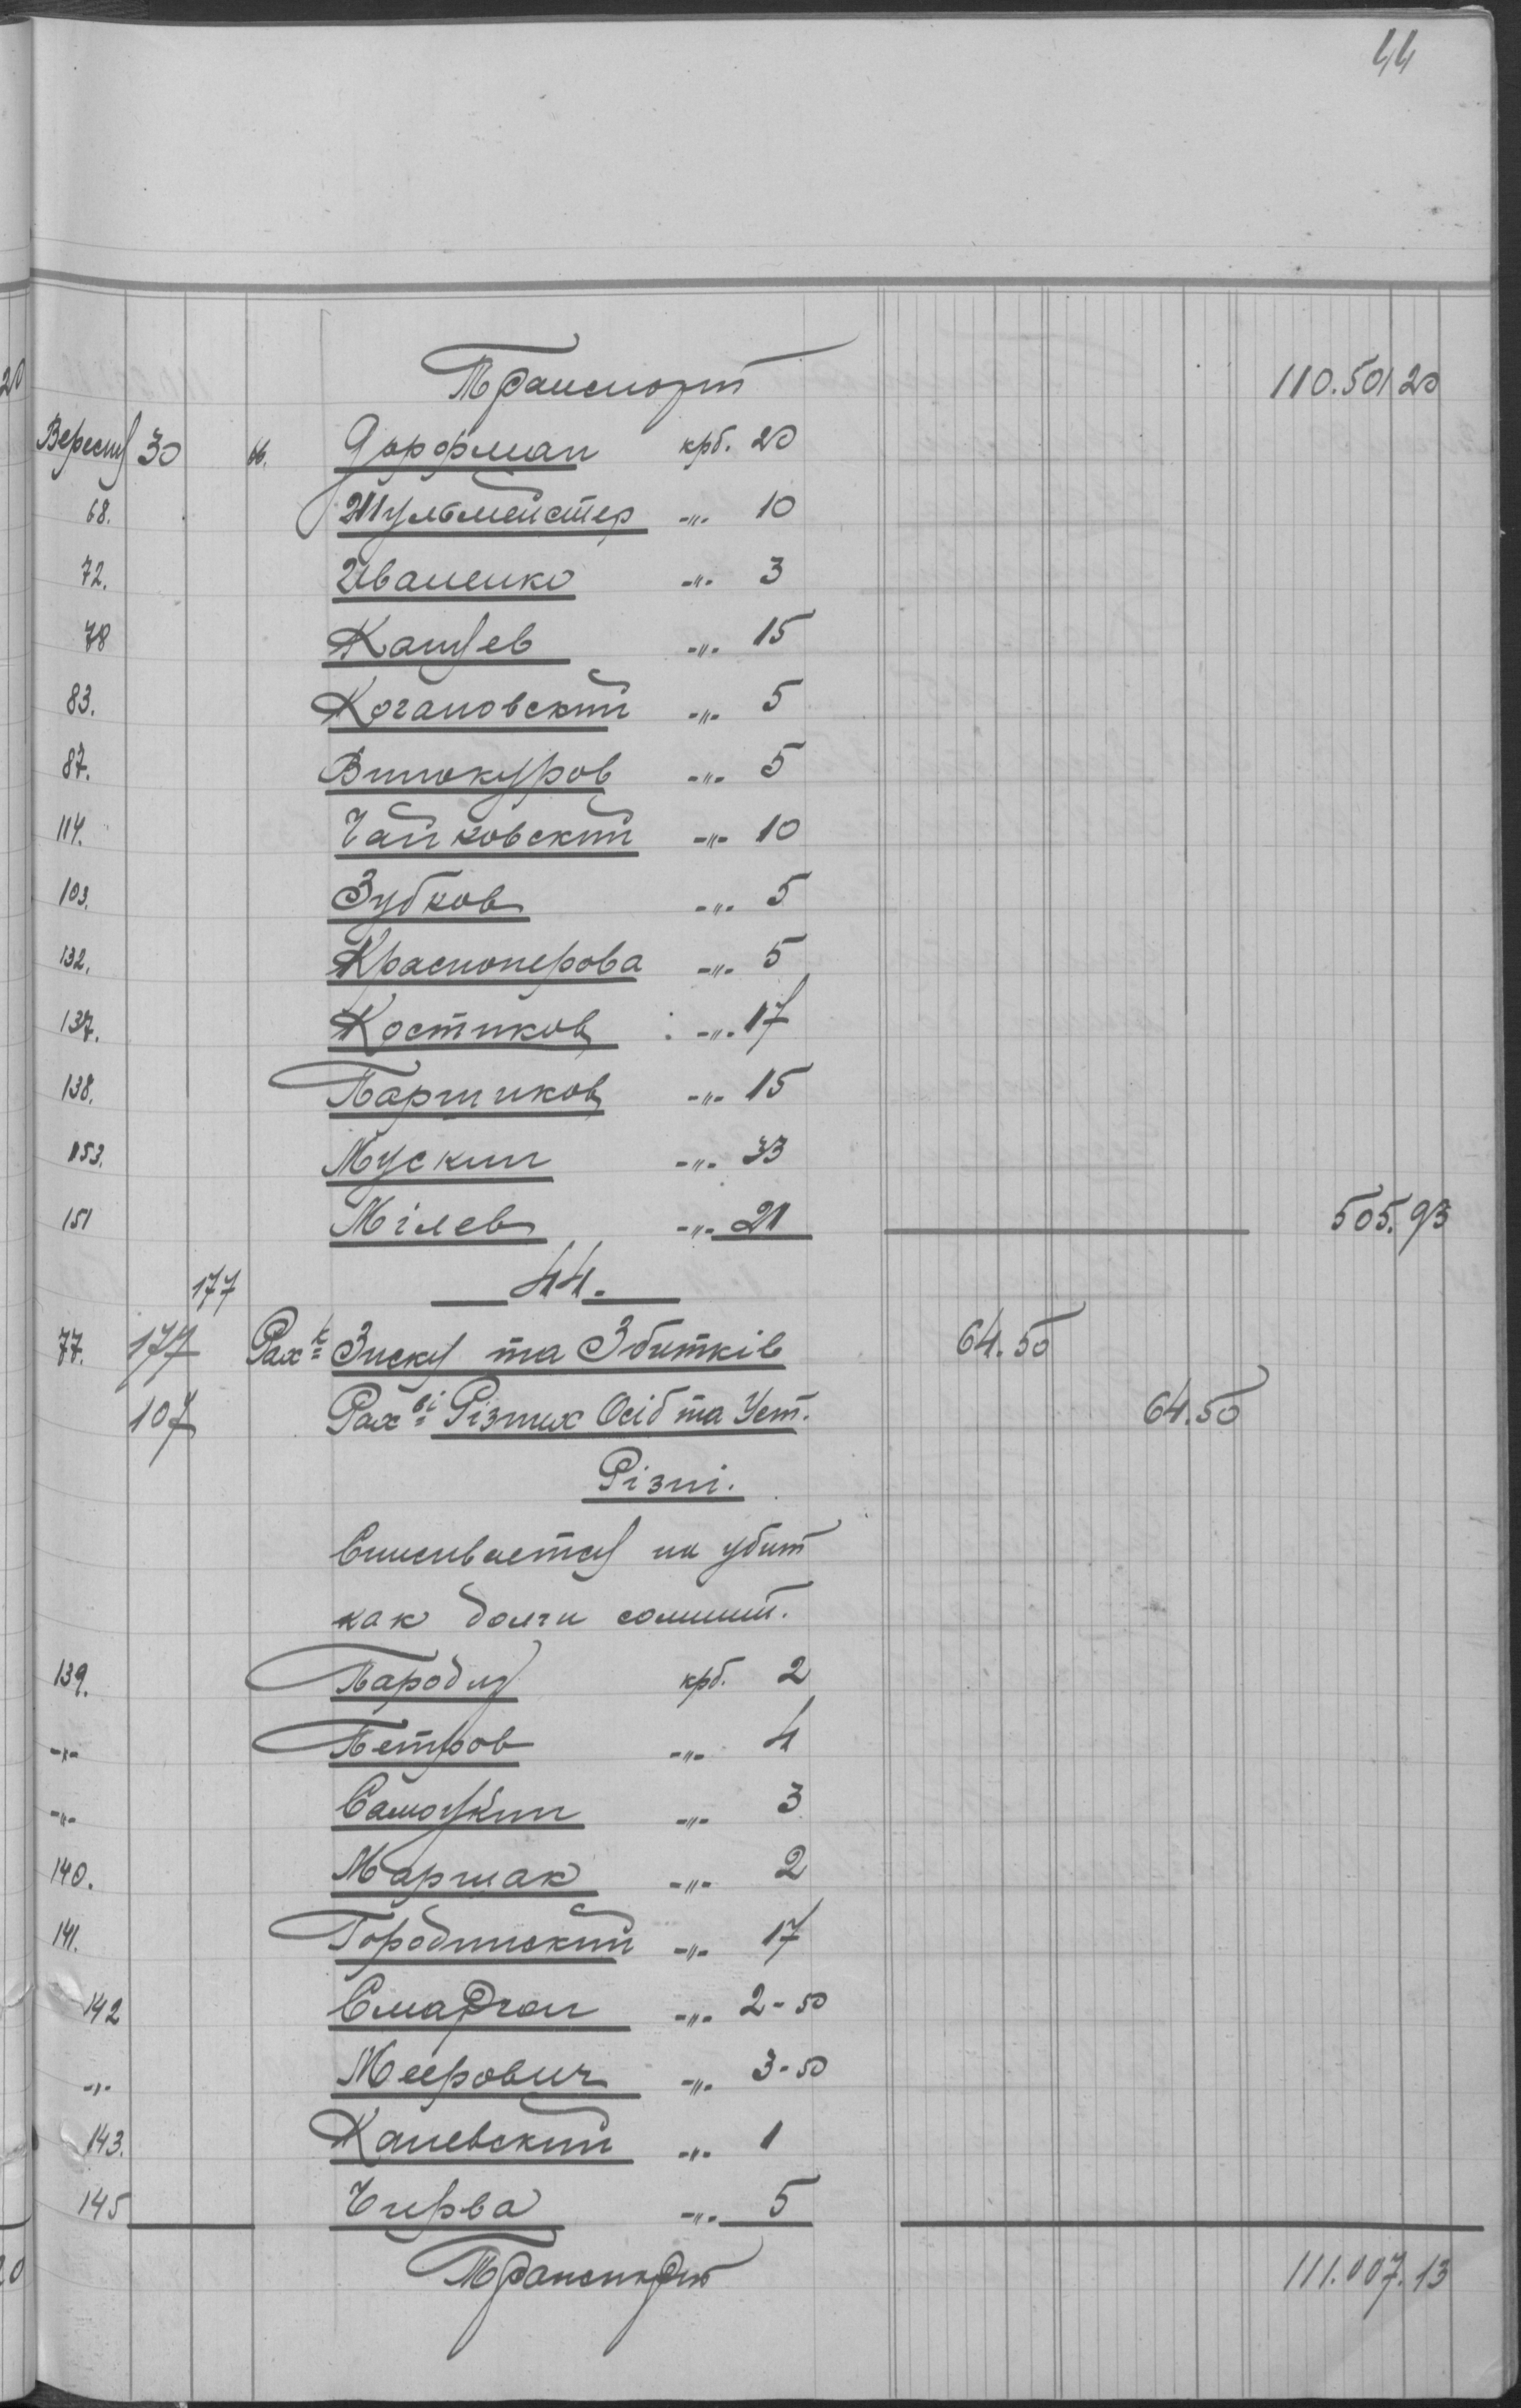 44
Транспорт 110.501 20
Вересня 30 66. Дорфман крб. 20
68. Шульмейстер -"- 10
72. Иваненко -"- 3
78 Канцев -"- 15
83. Когановский -"- 5
87. Винокуров -"- 5
114. Чайковский -"- 10
103. Зубков -"- 5
132. Красноперова -"- 5
137. Костиков -"- 17
138. Паршиков -"- 15
153. Мускин -"- 33
151 Мілев -"- 21 505.93
177 44.
77. 177 Рах-к Зиску та Збитків 64.50
107 Рах-ві Різних Осіб та Уст. 64.50
Різні.
Списивается на убит
как долги сомнит.
139. Пародия крб. 2
-"- Петров -"- 4
-"- Самоукин -"- 3
140. Маршак -"- 2
141. Городинский -"- 17
142 Смаргон -"- 2-50
-"- Меерович -"- 3-50
143. Каневский -"- 1
145 Чирва -"- 5
Транспорт 111.007.13
20
20